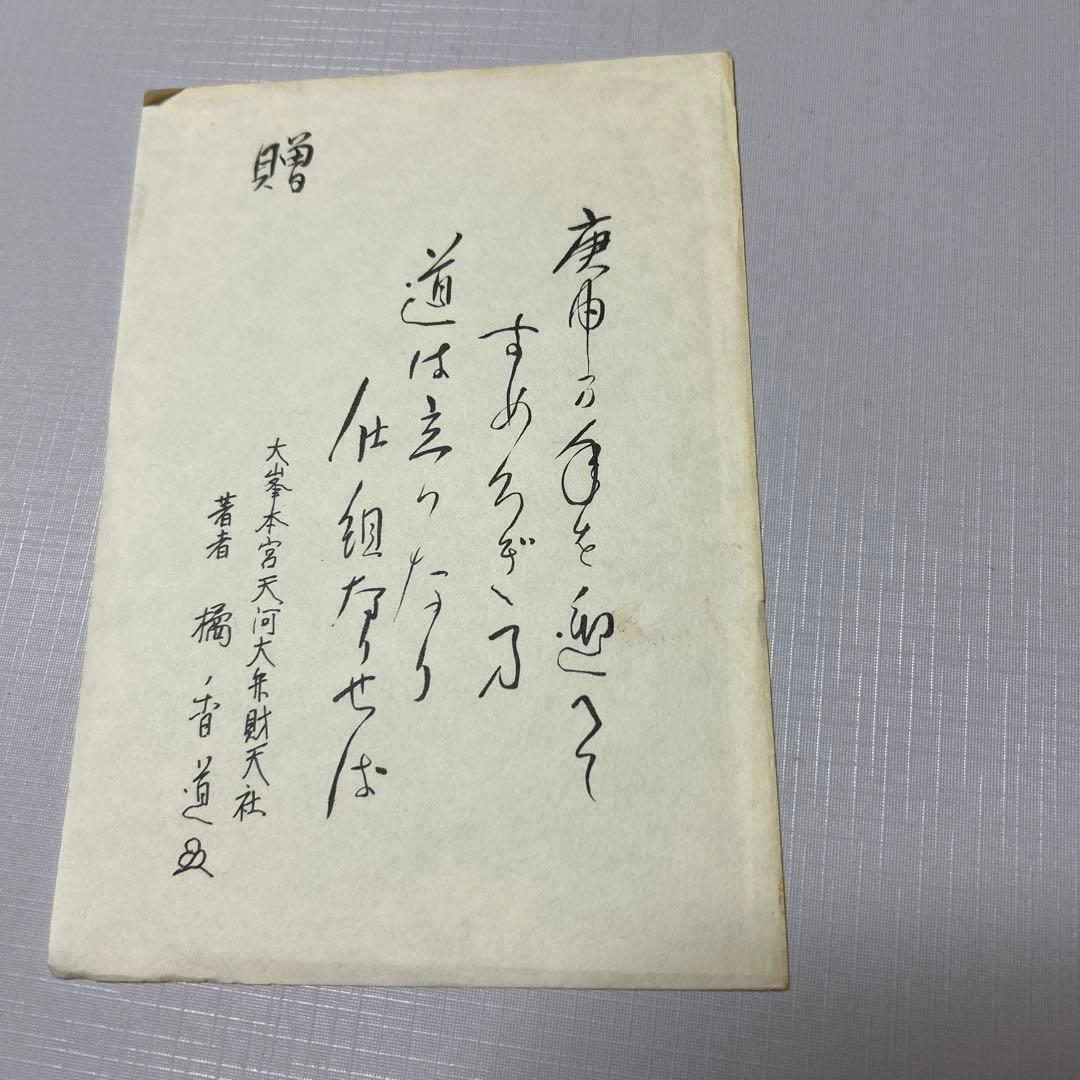 庚申乃年を迎へて
すめろぎ乃
道は立つなり
仕組なりせば
大峯本宮天河大弁財天社
著者 橘香道
贈